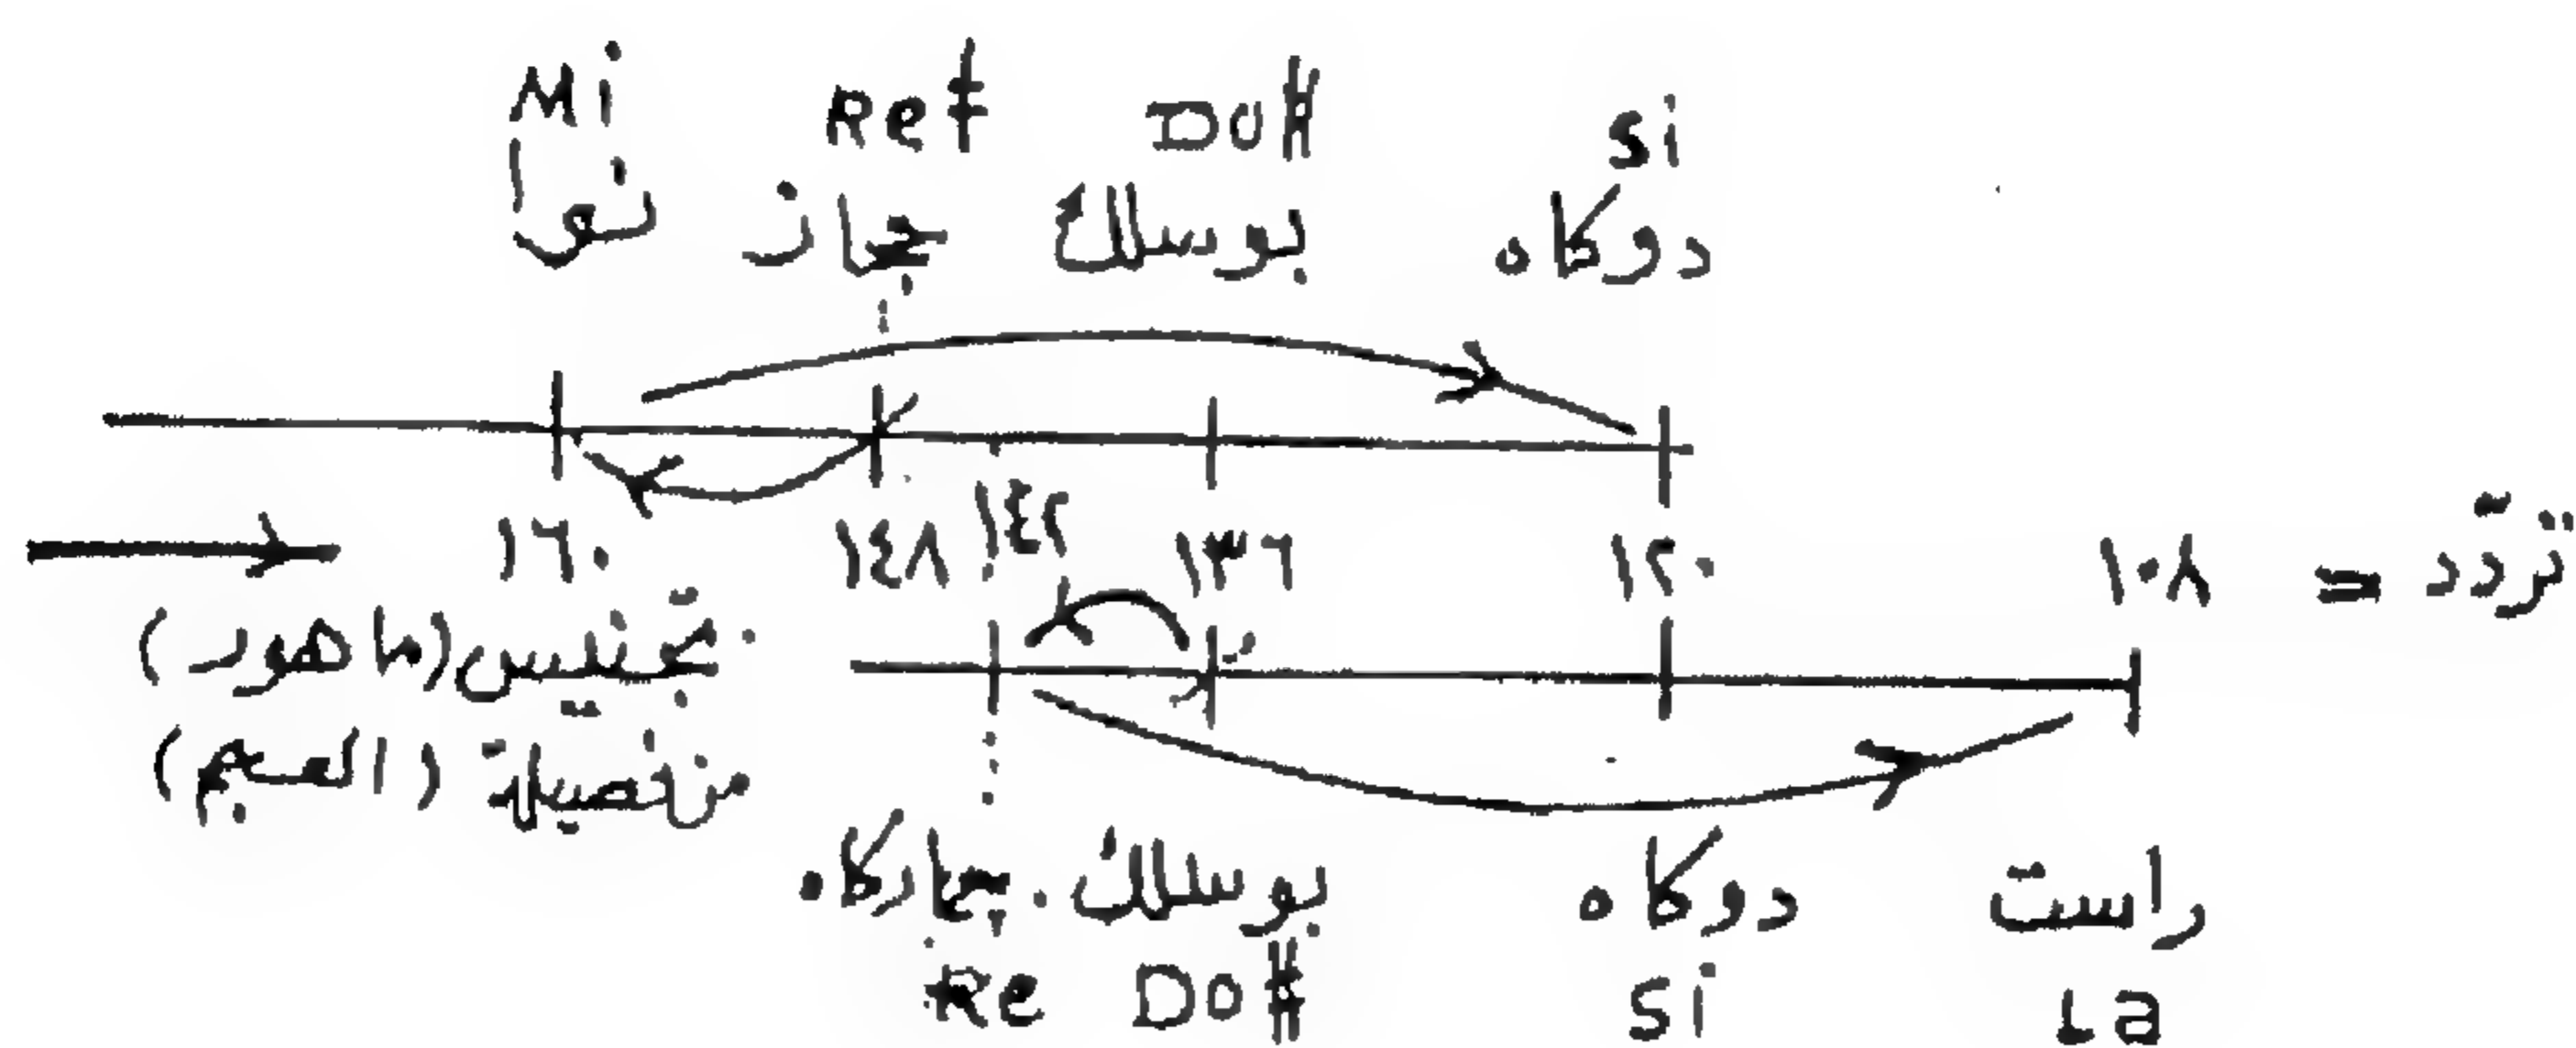 Mi Re‡ Do# Si
نوا حجاز بوسلك دوكاه
١٦٠ ١٤٨ ١٤٢ ١٣٦ ١٢٠ ١٠٨ = تردّد
تجنيس (ماهور)
من فصيلة (العجم)
راست دوكاه بوسلك . چهاركاه
Re Do# Si La